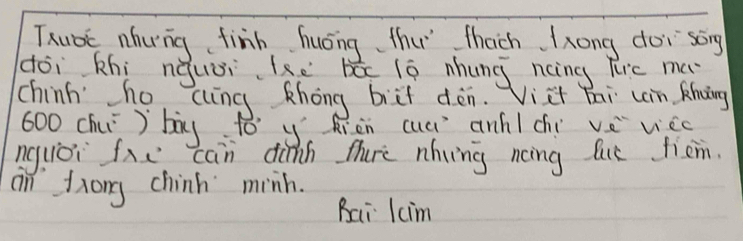 Trước những tình huống thử thách trong đời sống
đôi khi người trẻ bộc lộ những năng lực mà
chính họ cũng không biết đến. Viết bài văn khoảng
600 chữ ) bày tỏ ý kiến của anh/chị về việc
người trẻ cần đánh thức những năng lực tiềm
ẩn trong chính mình.
Bài làm